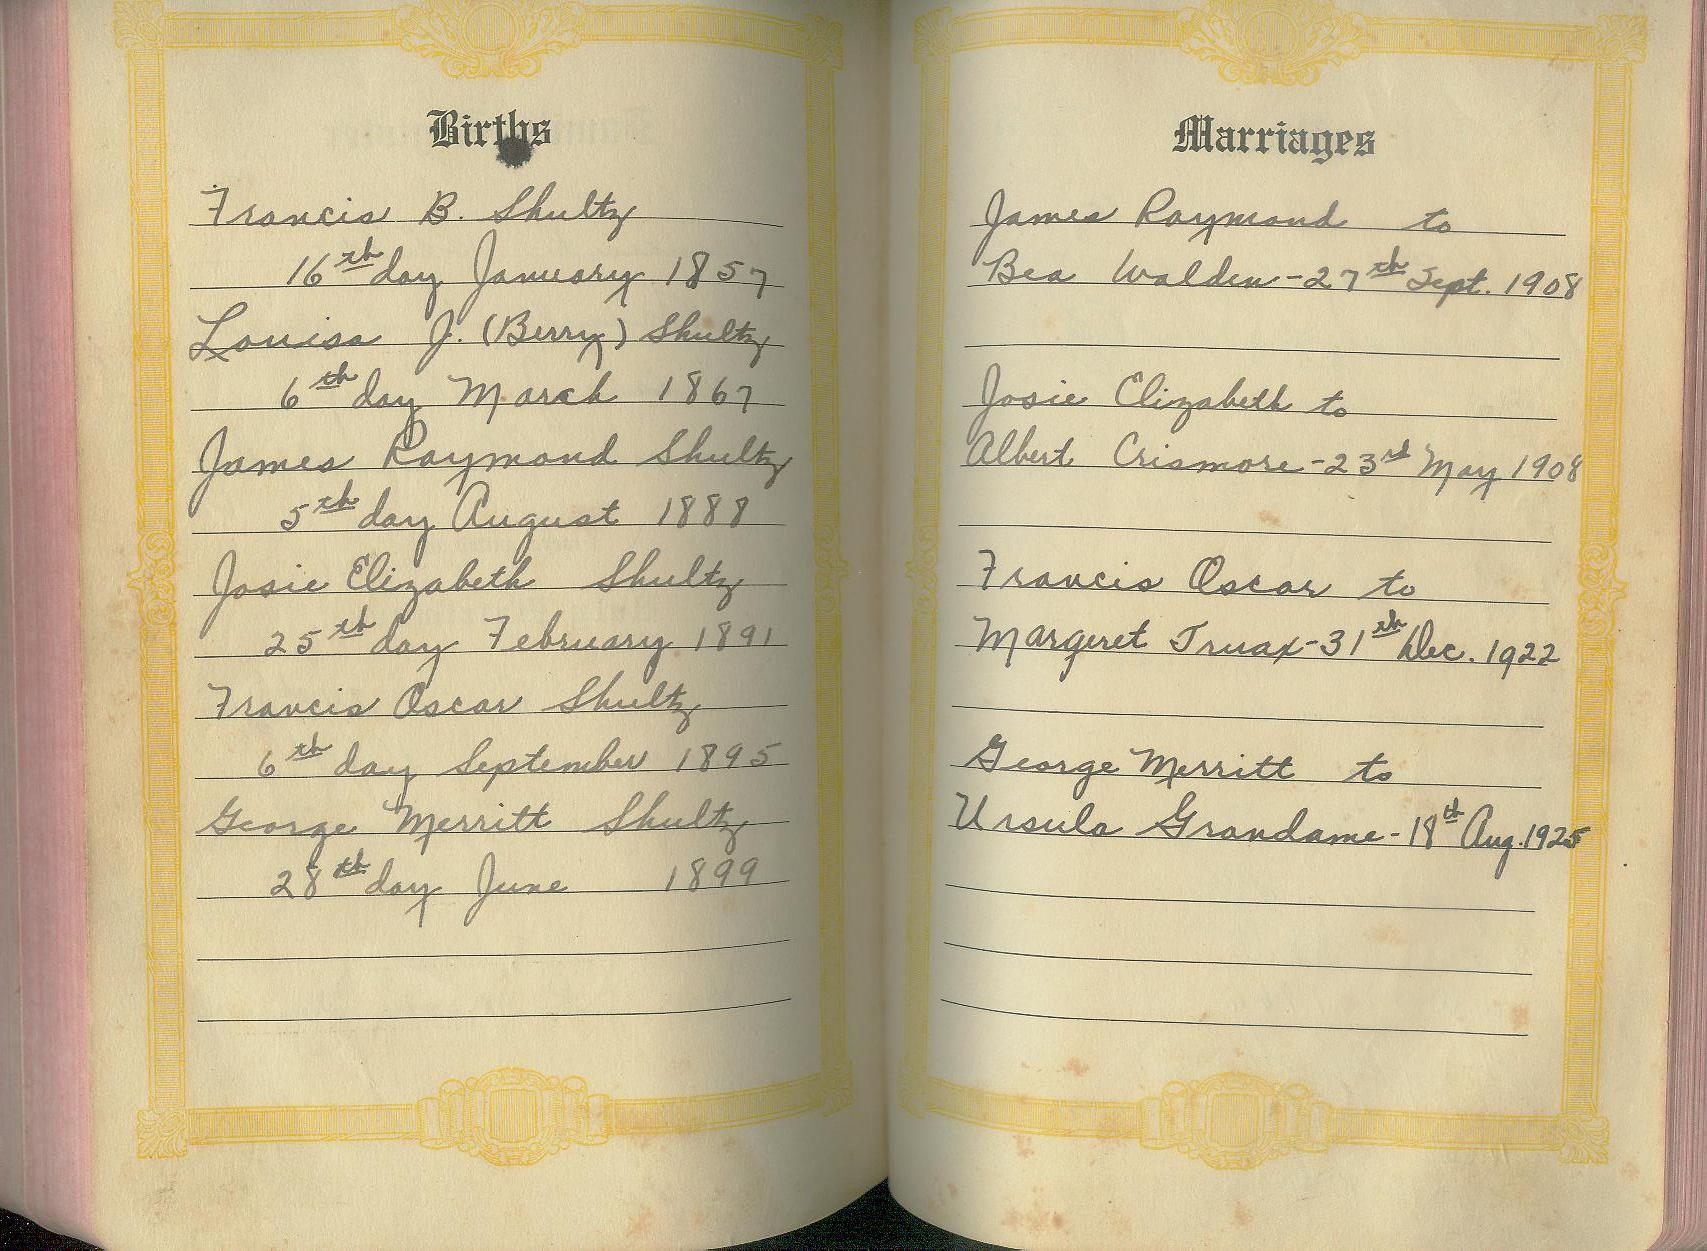 Births
Francis B. Shultz
16th day January 1857
Louisa J. (Berry) Shultz
6th day March 1867
James Raymond Shultz
5th day August 1888
Josie Elizabeth Shultz
25th day February 1891
Francis Oscar Shultz
6th day September 1895
George Merritt Shultz
28th day June 1899
Marriages
James Raymond to
Bea Walden - 27th Sept. 1908
Josie Elizabeth to
Albert Crismore - 23rd May 1908
Francis Oscar to
Margeret Truax - 31th Dec. 1922
George Merritt to
Ursula Grandame - 18th Aug. 1925